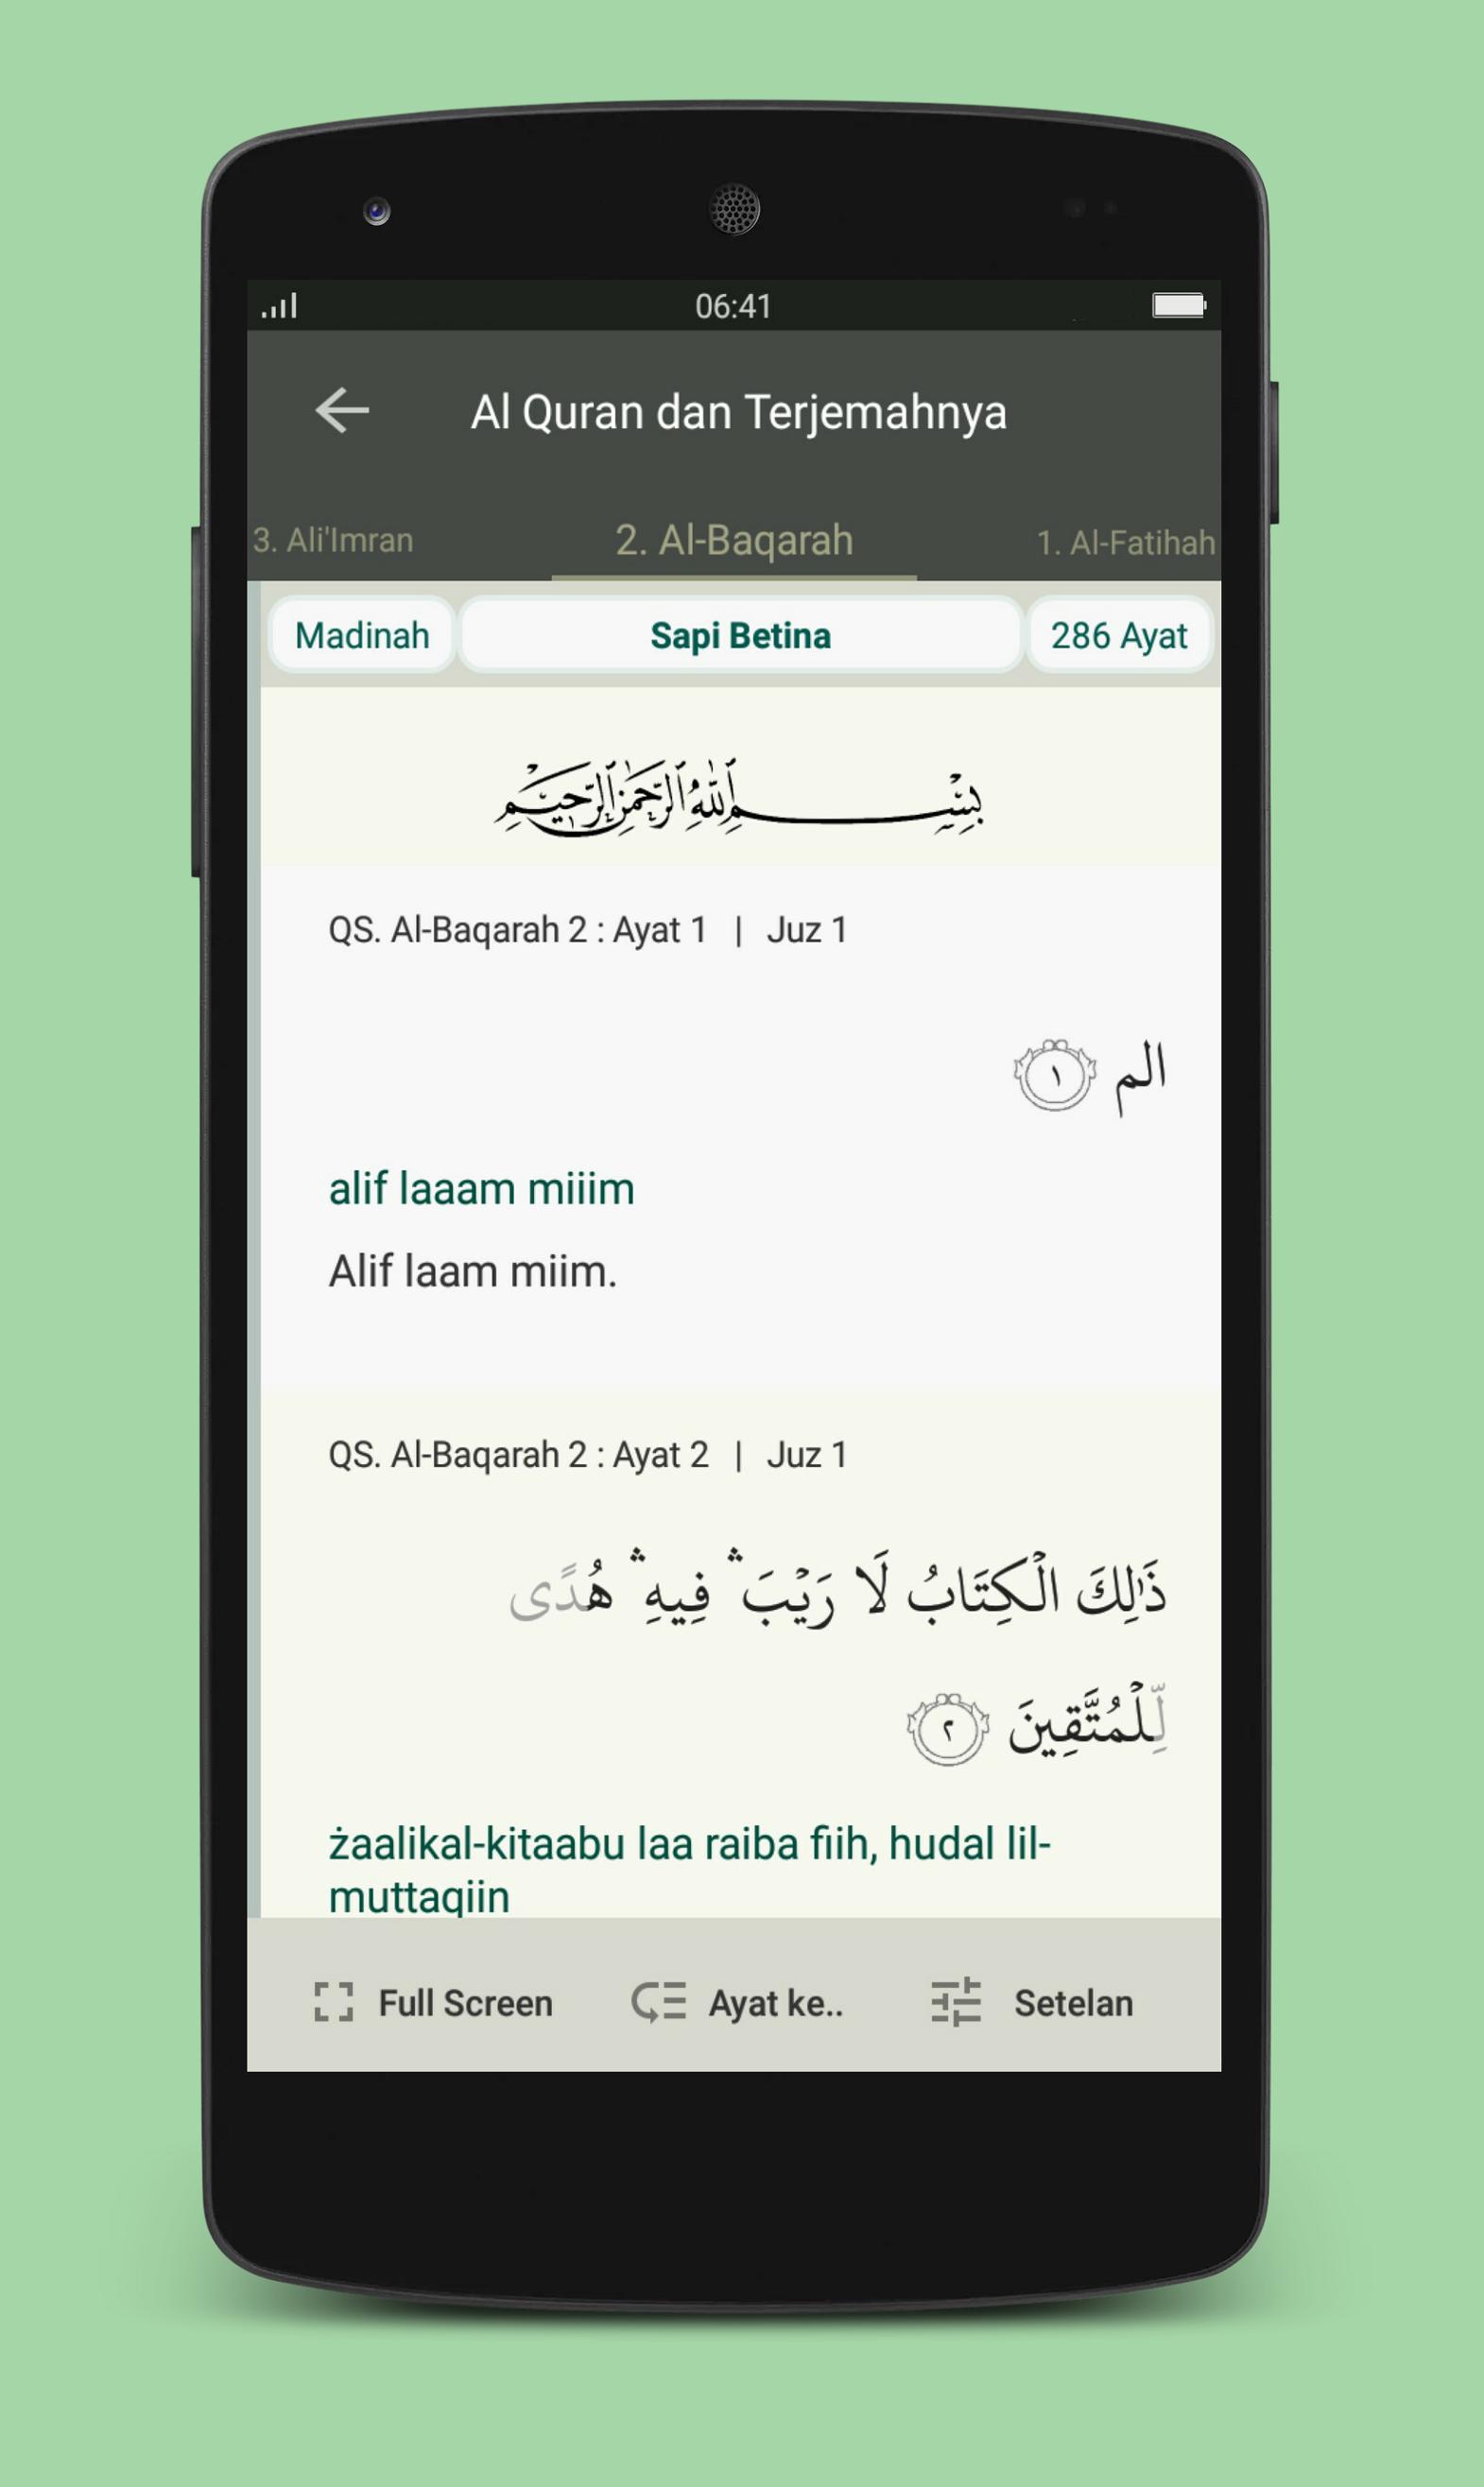 06:41
Al Quran dan Terjemahnya
3. Ali'Imran 2. Al-Baqarah 1. Al-Fatihah
Madinah Sapi Betina 286 Ayat
بِسْمِ ٱللَّهِ ٱلرَّحْمَٰنِ ٱلرَّحِيمِ
QS. Al-Baqarah 2 : Ayat 1 | Juz 1
الم ١
alif laaam miiim
Alif laam miim.
QS. Al-Baqarah 2 : Ayat 2 | Juz 1
ذَٰلِكَ الْكِتَابُ لَا رَيْبَ ۛ فِيهِ ۛ هُدًى
لِّلْمُتَّقِينَ ٢
żaalikal-kitaabu laa raiba fiih, hudal lil-
muttaqiin
Full Screen Ayat ke.. Setelan